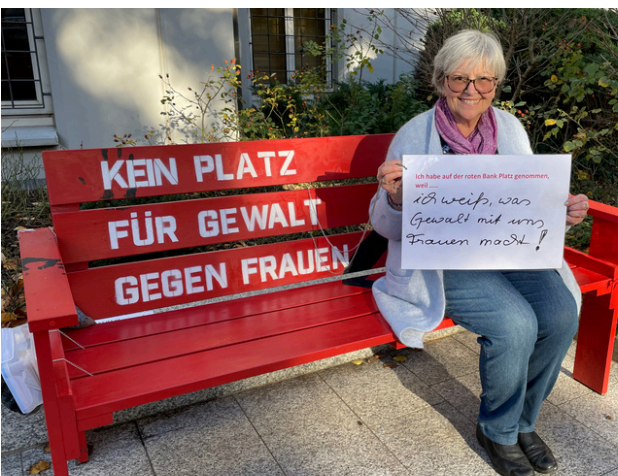 KEIN PLATZ
FÜR GEWALT
GEGEN FRAUEN
Ich habe auf der roten Bank Platz genommen,
weil .....
ich weiß, was
Gewalt mit uns
Frauen macht!